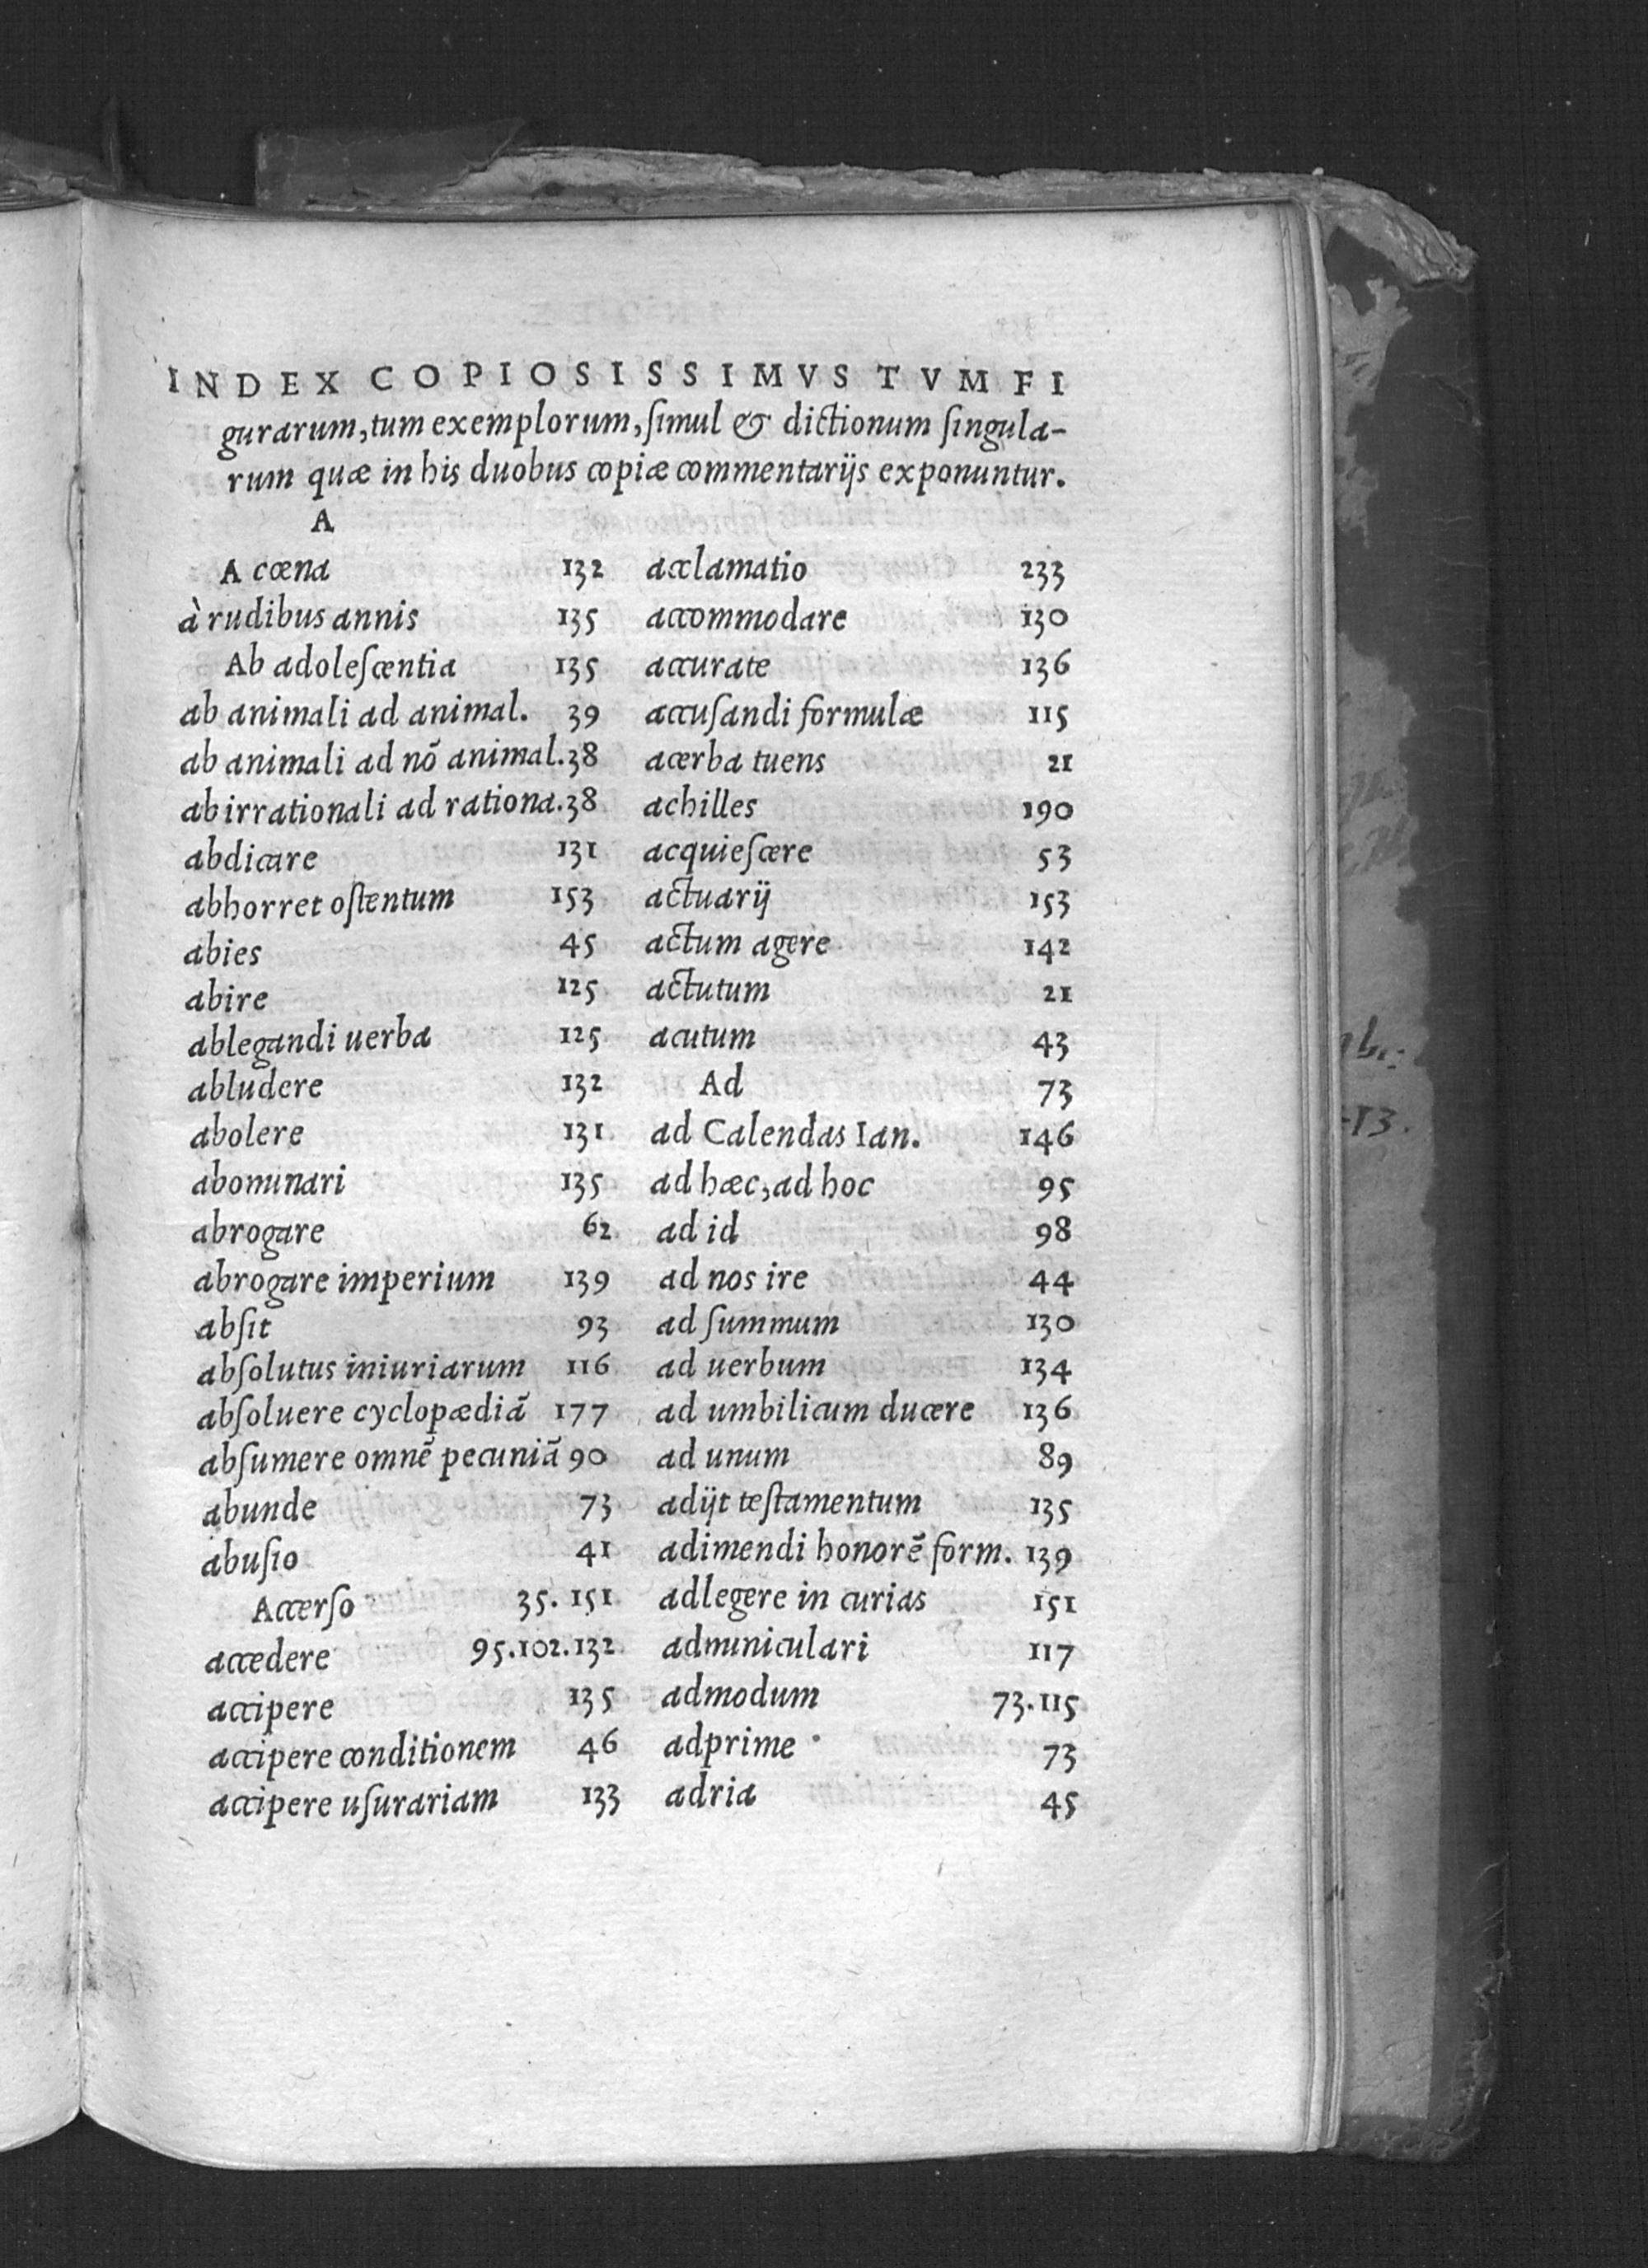 INDEX COPIOSISSIMVS TVM FI
gurarum, tum exemplorum, ſimul & dictionum ſingula-
rum quæ in his duobus copiæ commentarijs exponuntur.
A
A cœna 132
à rudibus annis 135
Ab adoleſcentia 135
ab animali ad animal. 39
ab animali ad nõ animal. 38
ab irrationali ad rationa. 38
abdicare 131
abhorret oſtentum 153
abies 45
abire 125
ablegandi uerba 125
abludere 132
abolere 131
abominari 135
abrogare 62
abrogare imperium 139
abſit 93
abſolutus iniuriarum 116
abſoluere cyclopædiã 177
abſumere omnẽ pecuniã 90
abunde 73
abuſio 41
Accerſo 35. 151
accedere 95.102.132
accipere 135
accipere conditionem 46
accipere uſurariam 133
acclamatio 233
accommodare 130
accurate 136
accuſandi formulæ 115
acerba tuens 21
achilles 190
acquieſcere 53
actuarij 153
actum agere 142
actutum 21
acutum 43
Ad 73
ad Calendas Ian. 146
ad hæc, ad hoc 95
ad id 98
ad nos ire 44
ad ſummum 130
ad uerbum 134
ad umbilicum ducere 136
ad unum 89
adijt teſtamentum 135
adimendi honorẽ form. 139
adlegere in curias 151
adminiculari 117
admodum 73.115
adprime 73
adria 45